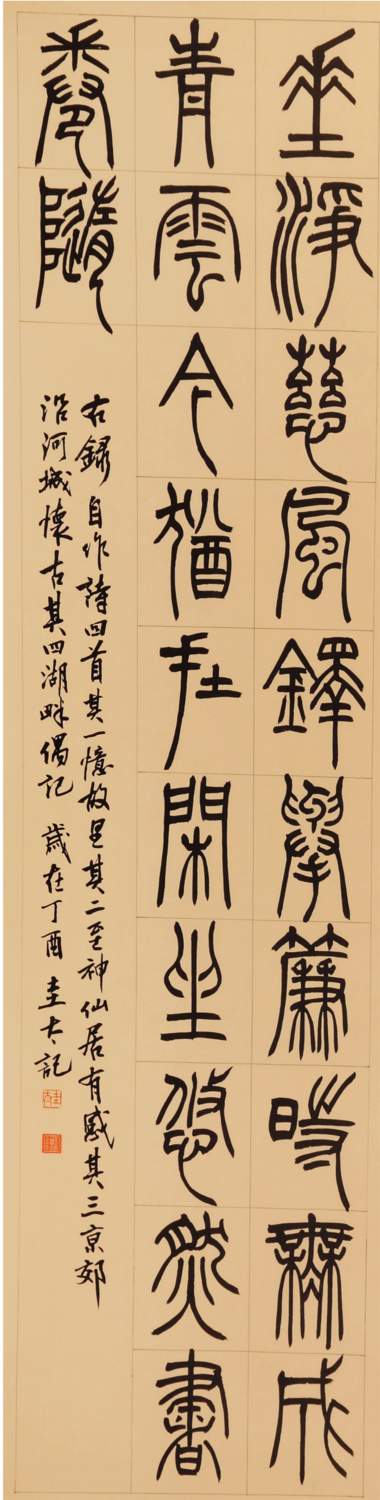 垂淨慈風鐸舉簾時無成
青雲今猶在閑坐悠然書
卷隨
右錄自作詩四首其一憶故里其二至神仙居有感其三京郊
沿河城懷古其四湖畔偶記 歲在丁酉 圭記